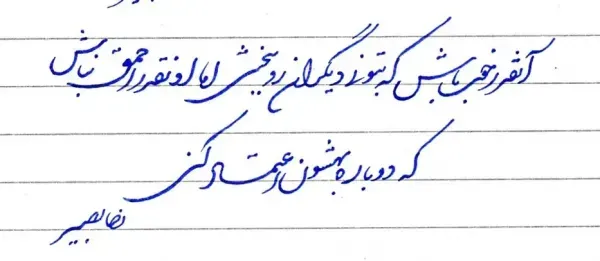 آنقدر خوب باش که بتونی دیگران رو ببخشی اما اونقدر احمق نباش
که دوباره بهشون اعتماد کنی